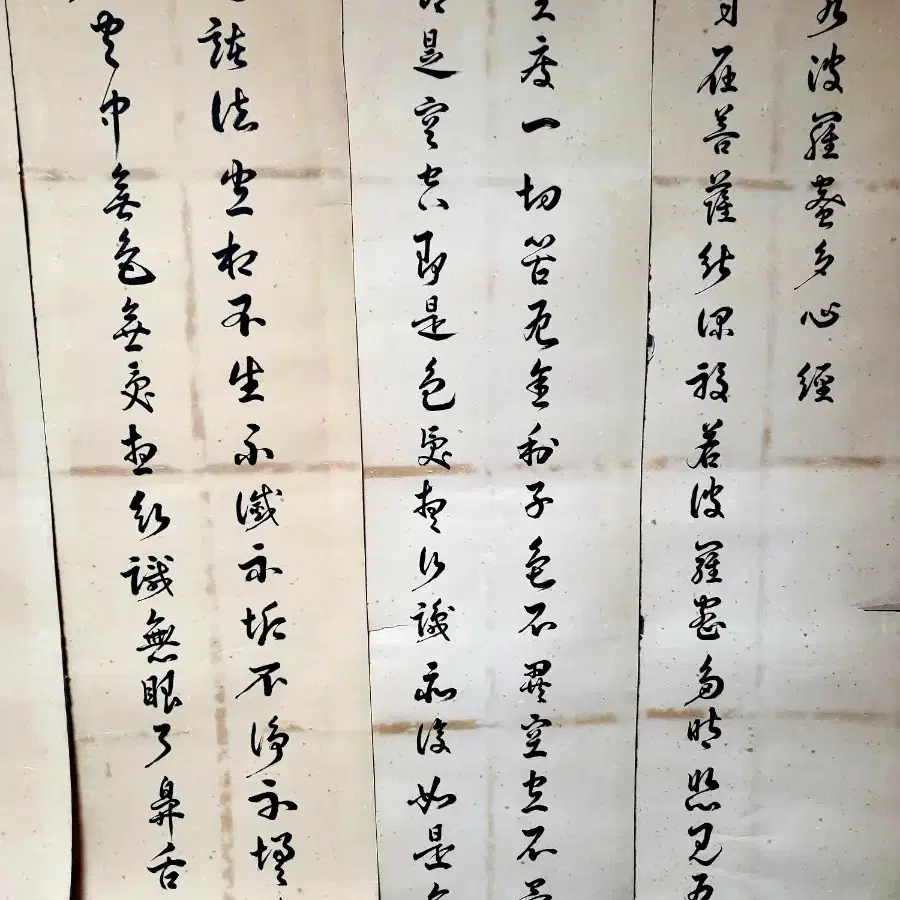 若波羅蜜多心經
自在菩薩行深般若波羅蜜多時照見五
空度一切苦厄舍利子色不異空空不異
即是空空即是色受想行識亦復如是
諸法空相不生不滅不垢不淨不增
空中無色無受想行識無眼耳鼻舌